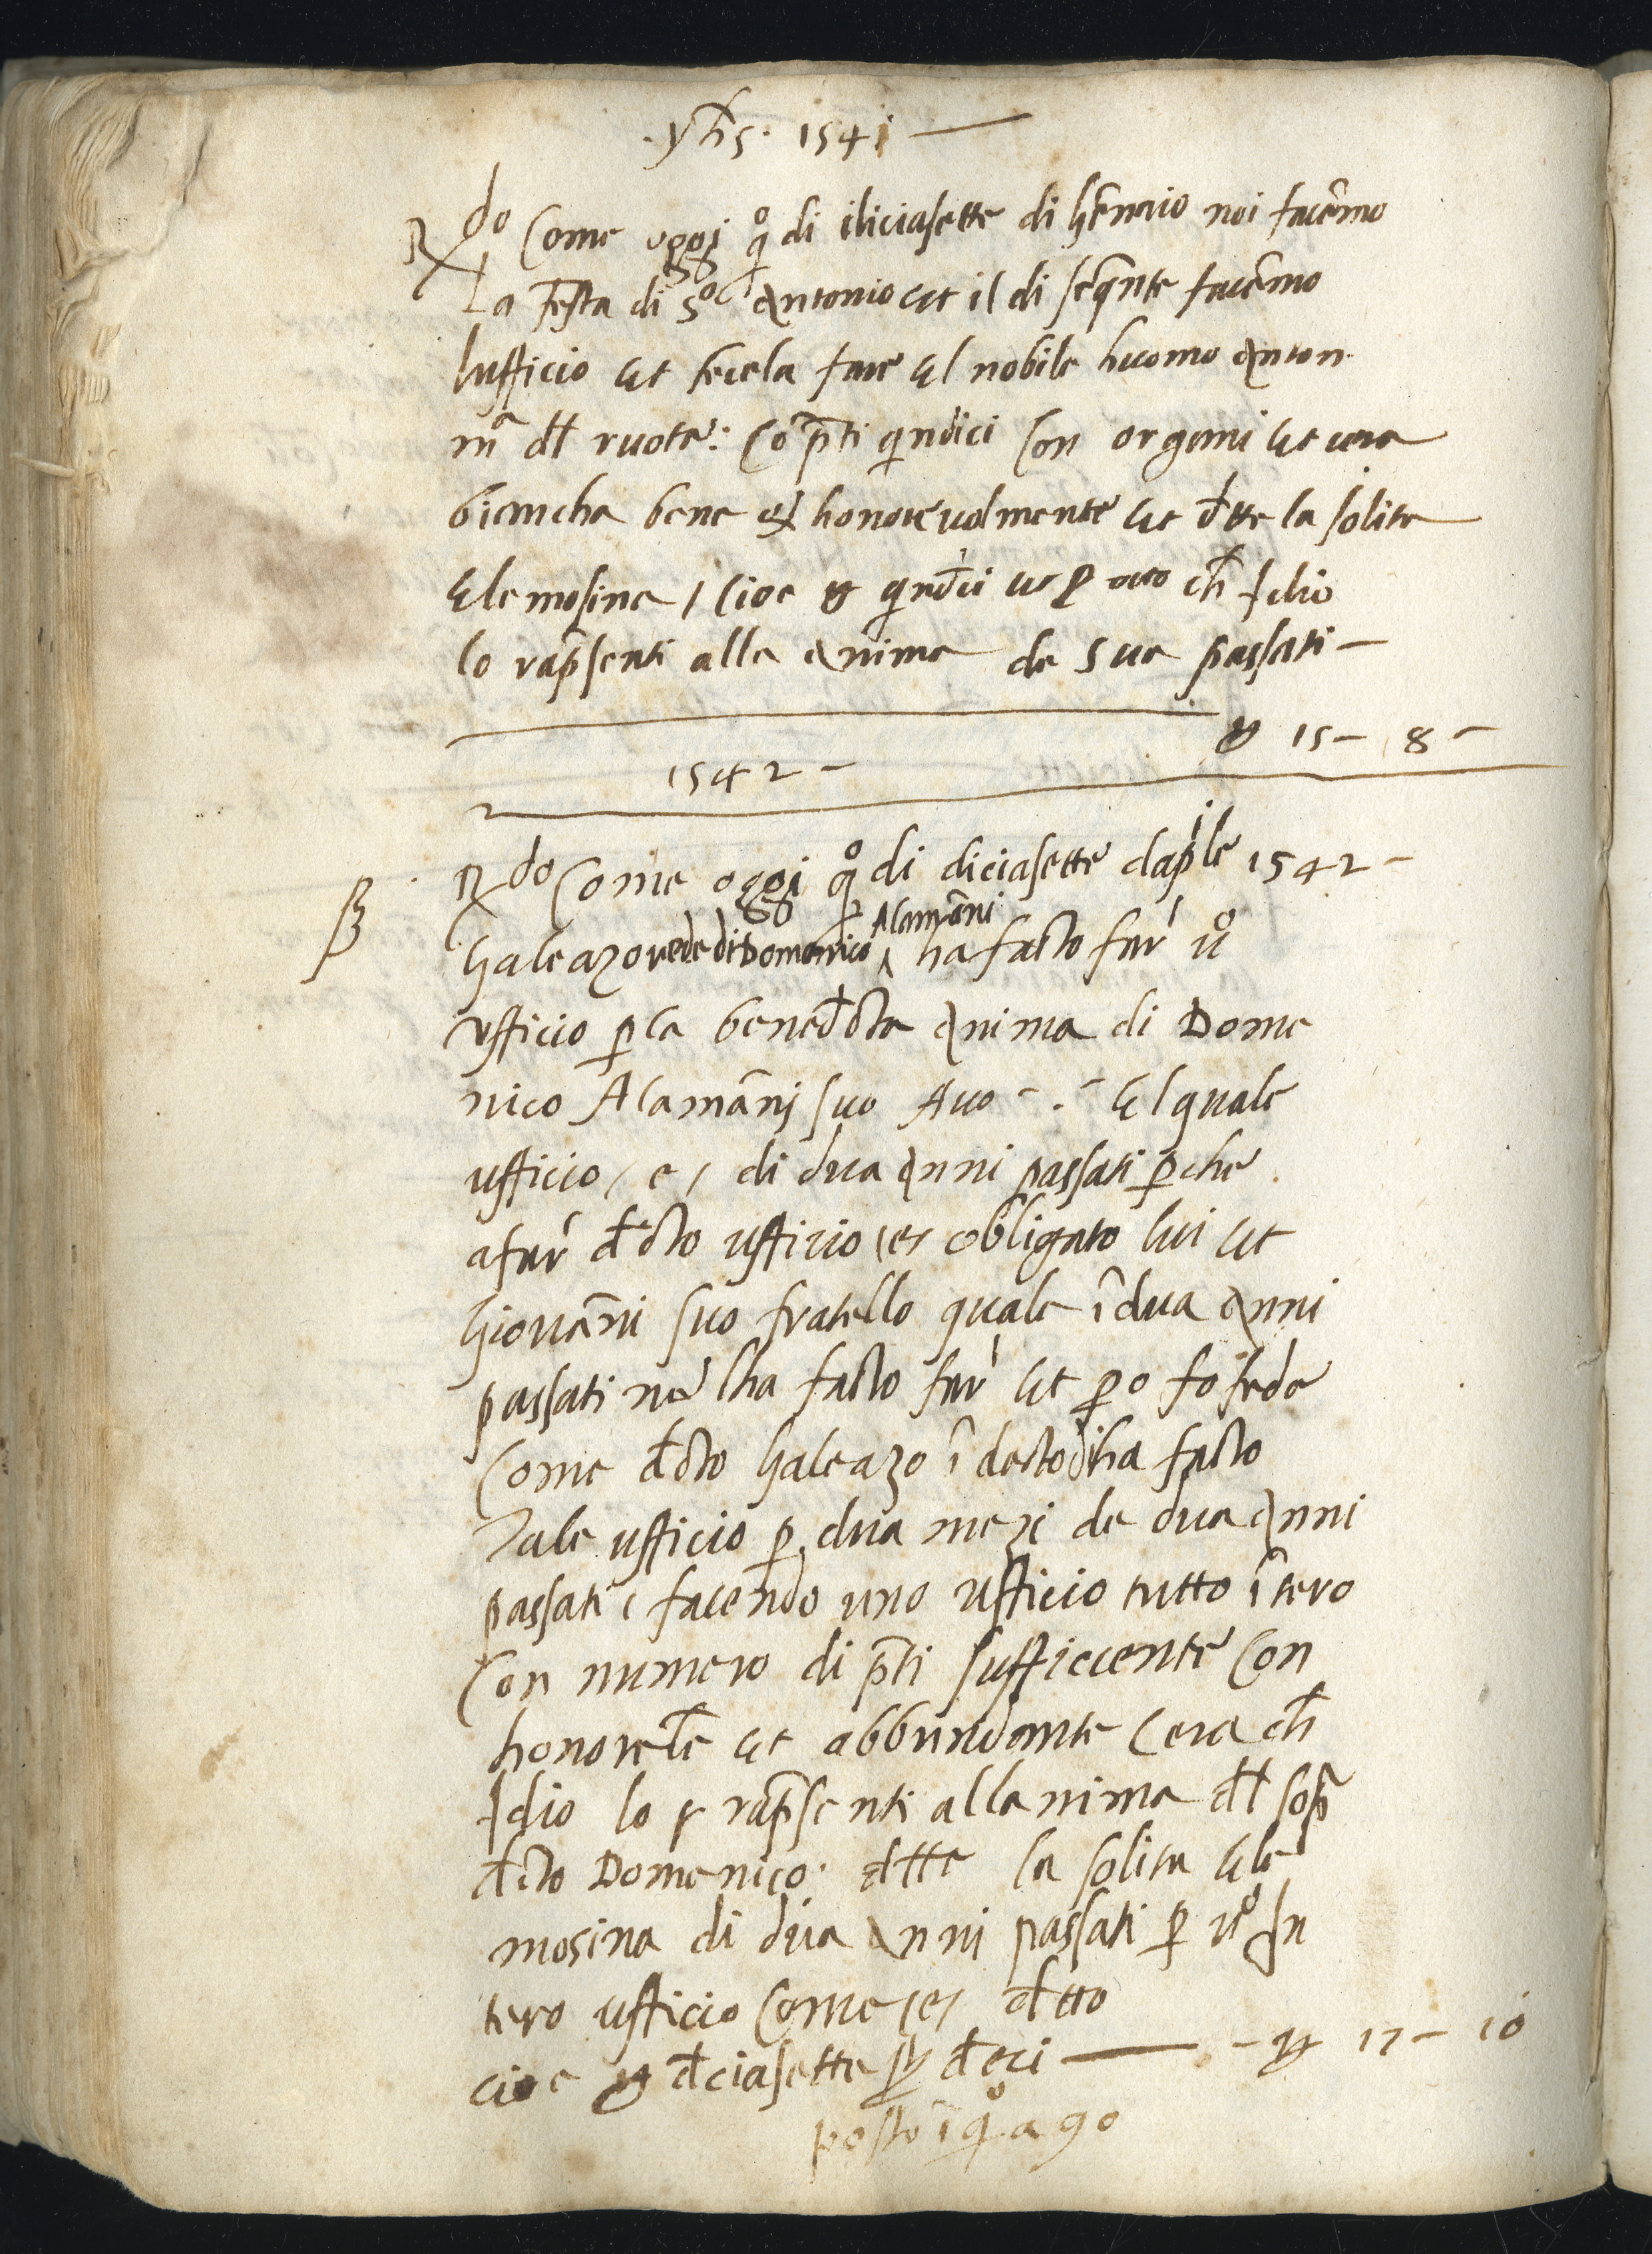 .yhs. 1541
Rdo Come oggi qo di diciasette di Gennaio noi facemo
La festa di Sto Antonio et il di sequente facemo
lufficio et fecela fare el nobile huomo Anton
ma dl ruota: Co pti quindici Con organi et cera
biancha bene et honorevolmente et dette la solita
elemosina / cioe quindici otto ch Idio
lo rapsenti alla anima de sua passati
15 - 8 -
1542 -
Rdo Come oggi qo di diciasette daprile 1542 -
Galeazo rede di Domenico Alamanni ha facto far uo
ufficio p la benedcta Anima di Dome
nico Alamanj suo Avo - . - El quale
ufficio / e / di dua Anni passati p che
a far dcto ufficio / e / obligato lui et
Giovanni suo fratello quale i dua Anni
passati no lha facto far et po fo fede
Come dcto Galeazo i decto di ha facto
Tale ufficio p dua mezi de dua Anni
passati / facendo uno ufficio tutto itero
Con numero di pti sufficcente Con
honorele et abbundante Cera ch
Idio lo rapsenti alla nima dl sop
dcto Domenico: dtte la solita Ele
mosina di dua Anni passati p uo In
tero ufficio Come / e / dtto
cioe dciasette dieci - 17 - 10
posto i qo a 90